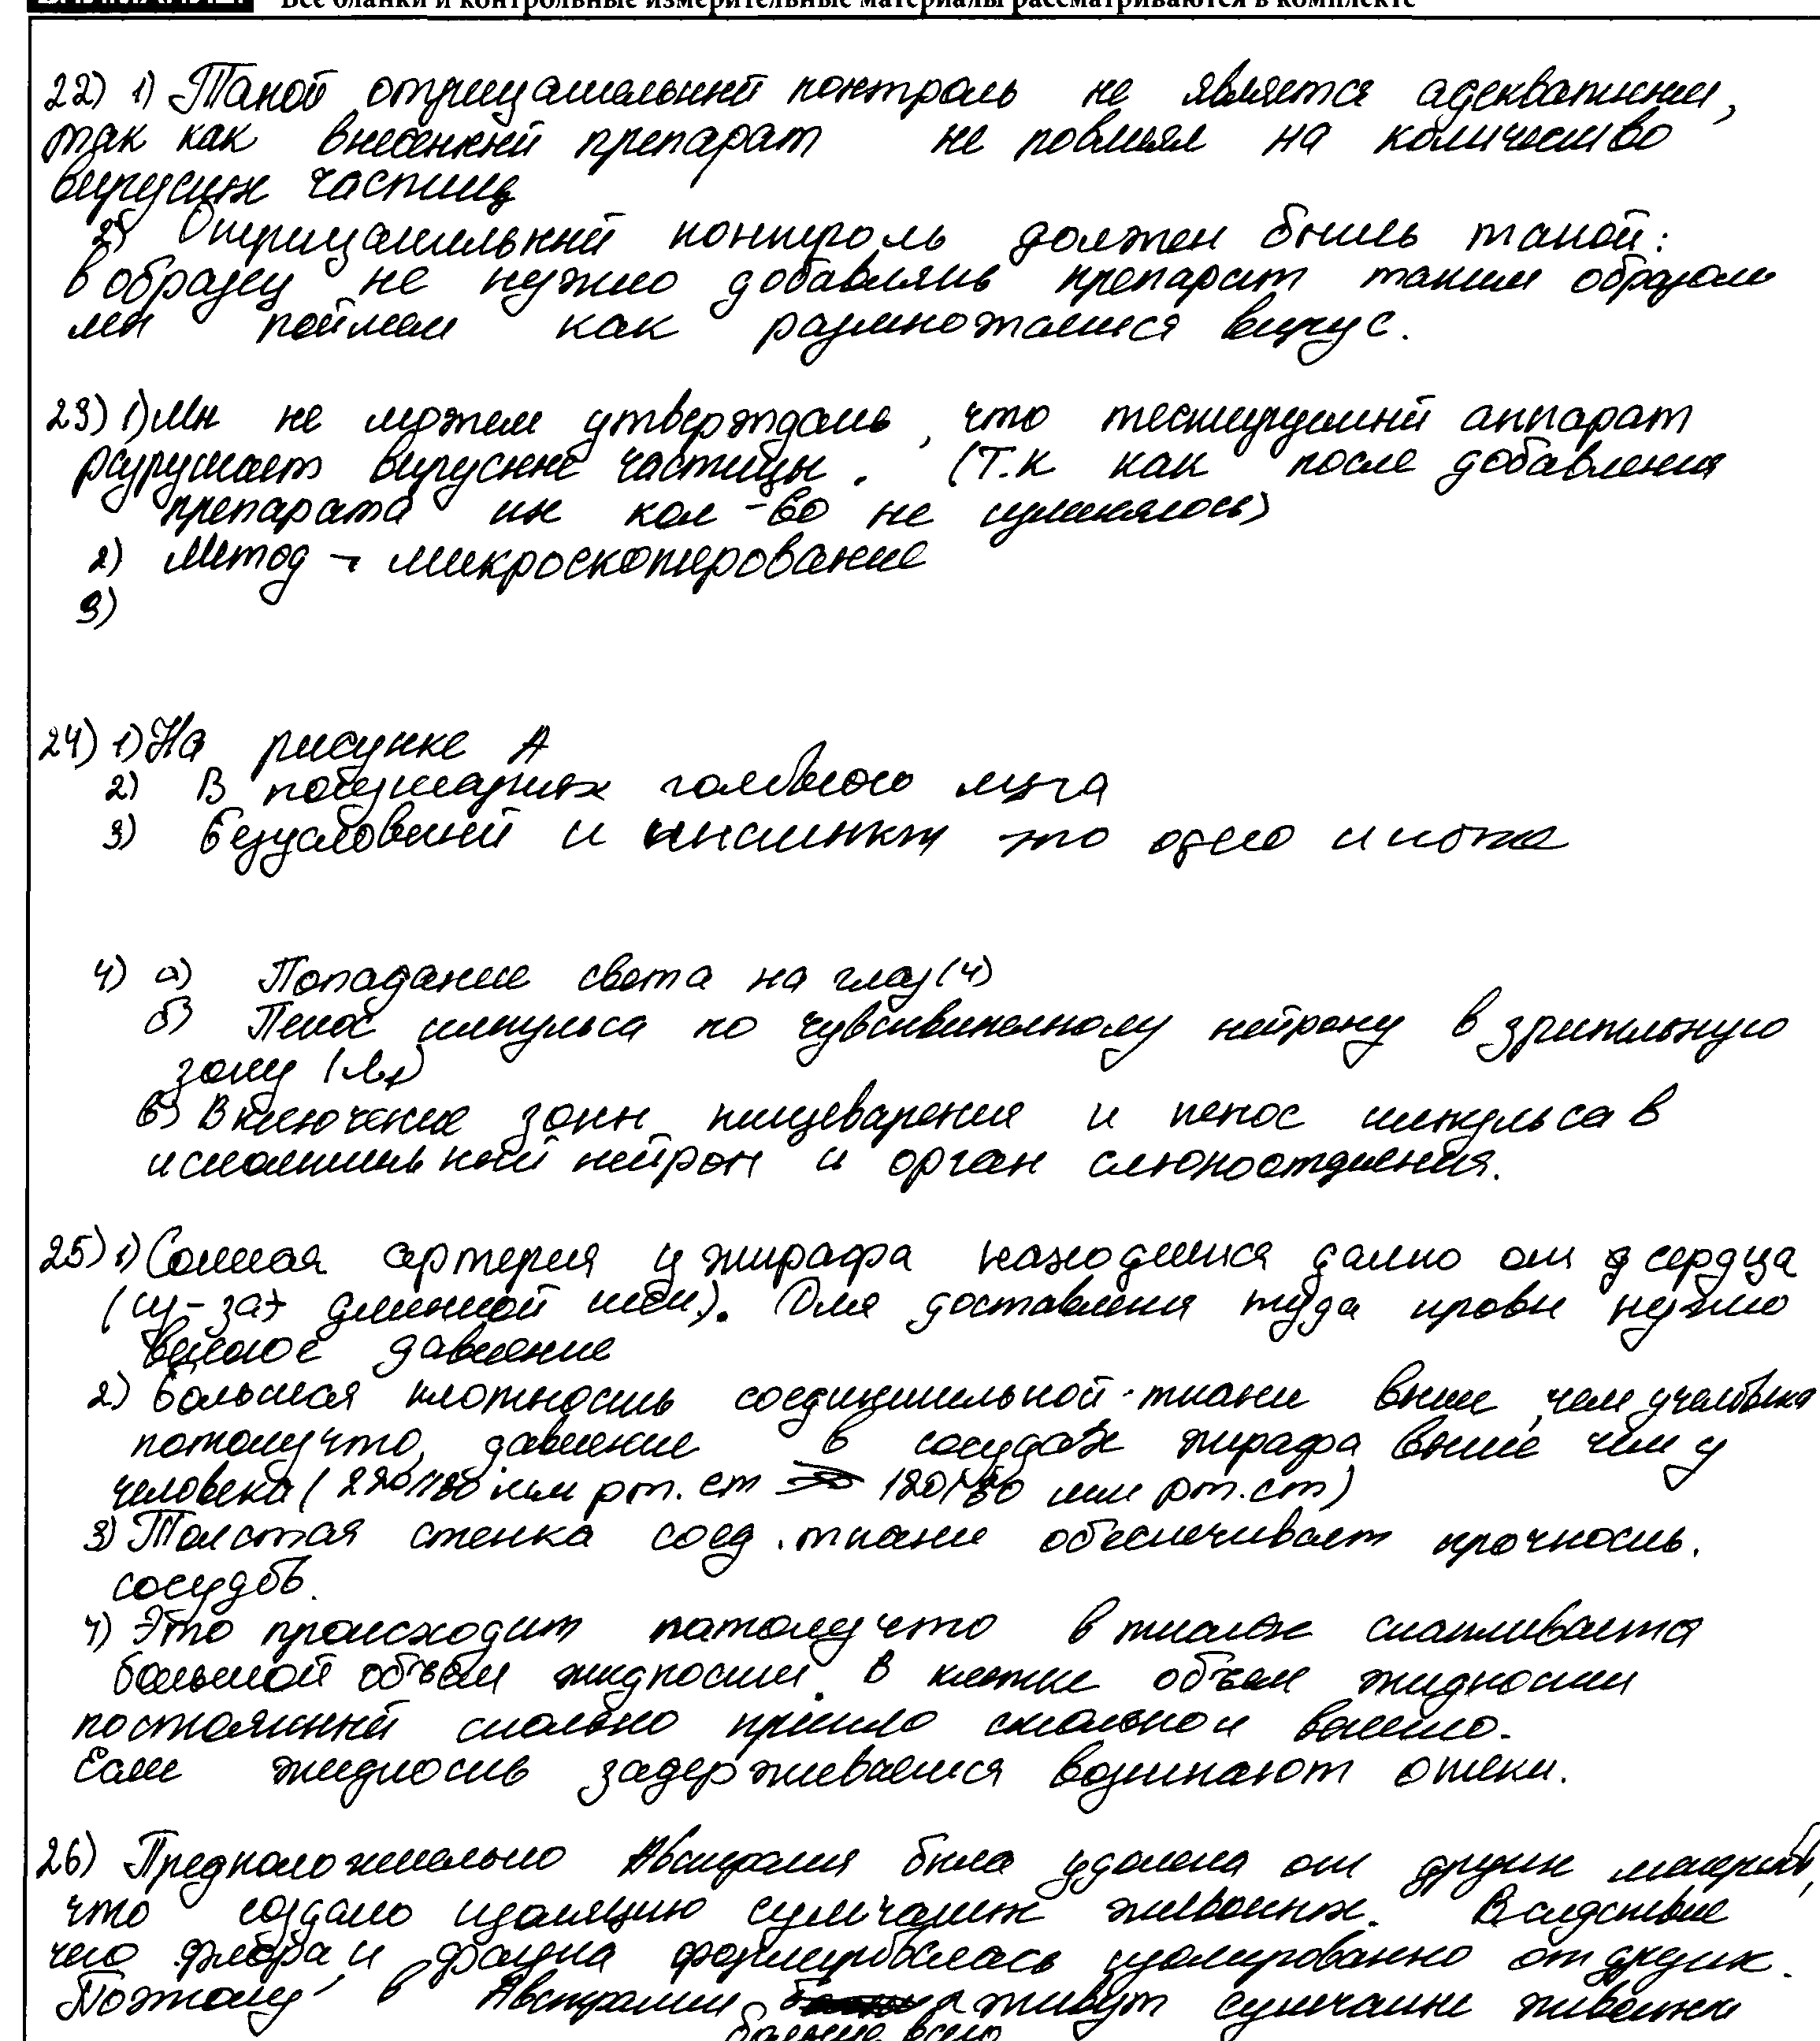 Все бланки и контрольные измерительные материалы рассматриваются в комплекте
22) 1) Такой отрицательный контроль не является адекватным,
так как внесенный препарат не повлиял на количество
вирусных частиц
2) Отрицательный контроль должен быть такой:
в образец не нужно добавлять препарат таким образом
мы поймем как размножается вирус.
23) 1) Мы не можем утверждать, что тестируемый аппарат
разрушает вирусные частицы. (Т.к как после добавления
препарата их кол-во не изменялось)
2) Метод - микроскопирование
3)
24) 1) На рисунке А
2) В полушариях головного мозга
3) Безусловный и инстинкт это одно и тоже
4) а) Попадание света на глаз (4)
б) импульса по чувствительному нейрону в зрительную
зону
в) Включение зоны пищеварения и импульса в
исполнительный нейрон и орган слюноотделения.
25) 1) Сонная артерия у жирафа находится далко от сердца
(из-за длинной шеи). Для доставления туда крови нужно
давление
2) Большая плотность соединительной ткани выше, чем у человека
потому что давление в сосудах жирафа выше чем у
человека (220/180 мм рт. ст 120/80 мм рт. ст)
3) Толстая стенка соед. ткани обеспечивает прочность.
сосудов.
4) Это происходит потому что в тканях скапливается
большой объём жидкости. В клетке объем жидкости
постоянный сколько пришло столько и вышло.
Если жидкость задерживается возникают отеки.
26) Предположительно Австралия была удалена от других материков,
что создало изоляцию сумчатых животных. Вследствие
чего флора и фауна формировалась изолированно от других.
Поэтому в Австралии живут сумчатые животные
больше всего